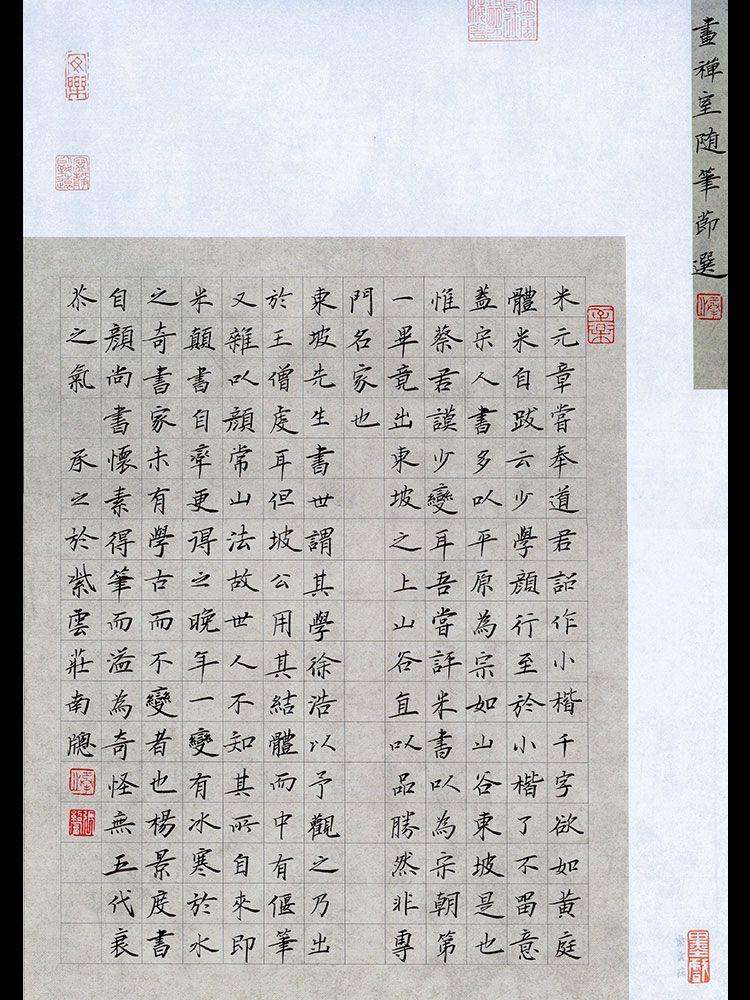 畫禪室随筆節選
米元章嘗奉道君詔作小楷千字欲如黃庭
體米自跋云少學顏行至於小楷了不留意
蓋宋人書多以平原為宗如山谷東坡是也
惟蔡君謨少變耳吾嘗評米書以為宋朝第
一畢竟出東坡之上山谷直以品勝然非專
門名家也
東坡先生書世謂其學徐浩以予觀之乃出
於王僧虔耳但坡公用其結體而中有偃筆
又雜以顏常山法故世人不知其所自來即
米顛書自率更得之晚年一變有冰寒於水
之奇書家未有學古而不變者也楊景度書
自顏尚書懷素得筆而溢為奇怪無五代衰
苶之氣 承之於紫雲莊南牕